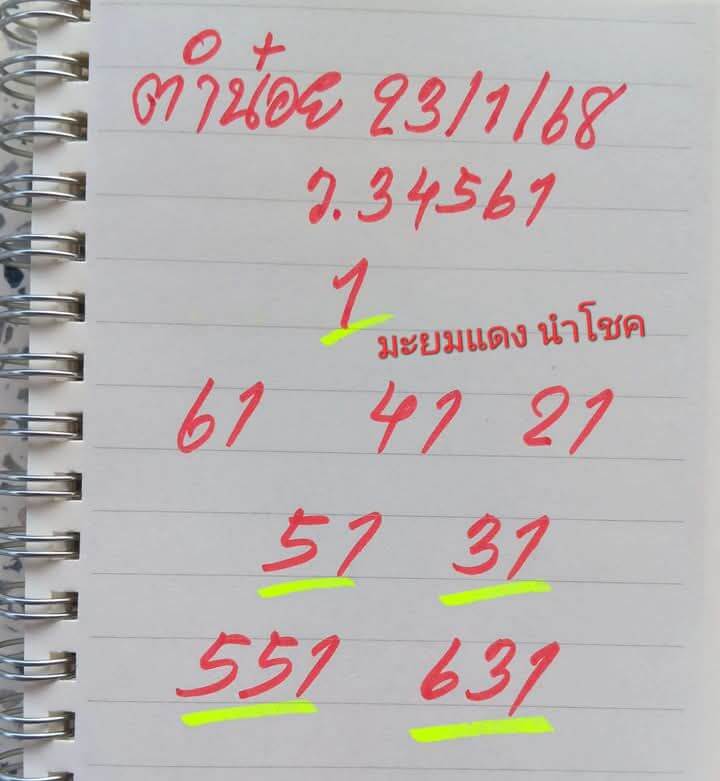 ตำน้อย 23/1/68
ว.34561
1
มะยมแดง นำโชค
61 41 21
51 31
551 631